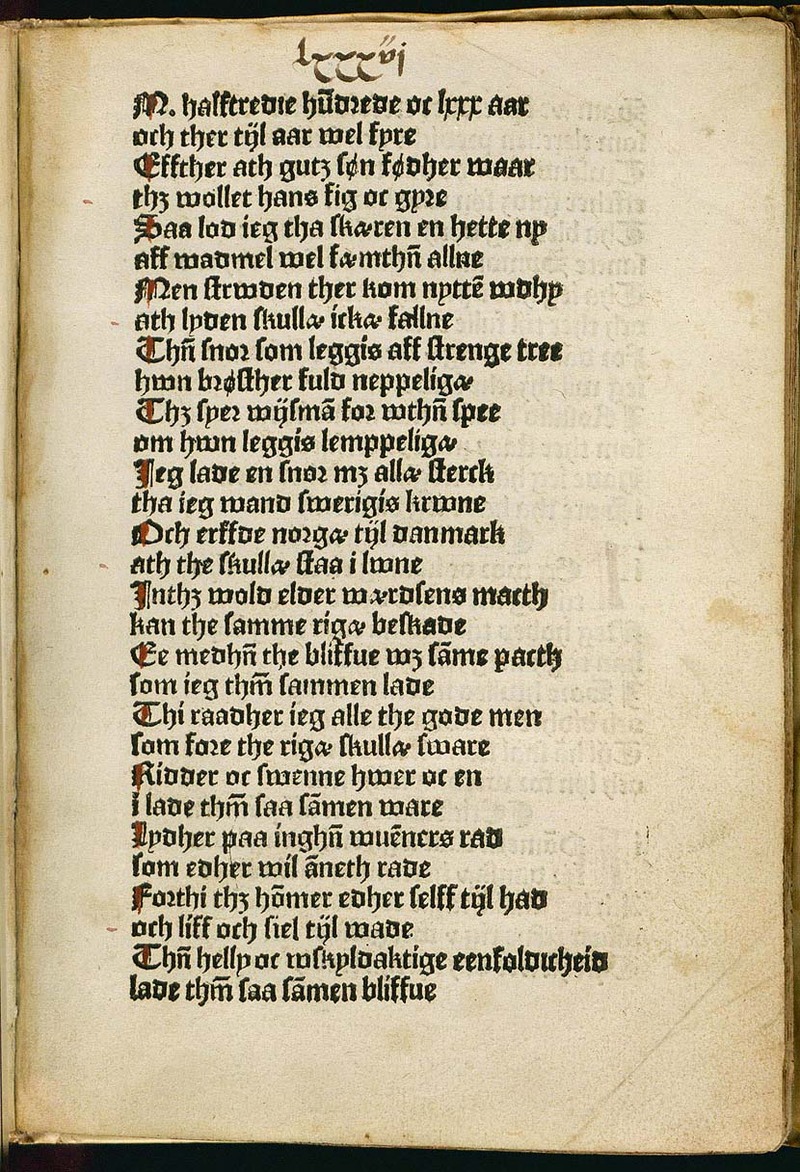 lxxxvi
M. halfftredie hūdrede oc lxxx aar
och ther tijl aar wel fyre
Effther ath gutz søn fødher waar
thz wollet hans sig oc gyre
Saa lod ieg tha skæren en hette ny
aff wadmel wel sæmthn̄ allne
Men strwden ther kom nyttē wdhy
ath lyden skullæ ickæ fallne
Thn̄ snor som leggis aff strenge tree
hwn brøsther fuld neppeligæ
Thz syer wijsmā for wthn̄ spee
om hwn leggis lemppeligæ
Jeg lade en snor mz allæ sterck
tha ieg wand swerigis krwne
Och erffde norgæ tijl danmark
ath the skullæ staa i lwne
Jnthz wold elder wærdsens macth
kan the samme rigæ beskade
Ee medhn̄ the bliffue wz sāme pacth
som ieg thm̄ sammen lade
Thi raadher ieg alle the gode men
som fore the rigæ skullæ sware
Ridder oc swenne hwer oc en
i lade thm̄ saa sāmen ware
Lydher paa inghn̄ wuēners rad
som edher wil āneth rade
Forthi thz hōmer edher selff tijl had
och liff och siel tijl wade
Thn̄ helly oc wskyldaktige eenfoldicheid
lade thm̄ saa sāmen bliffue